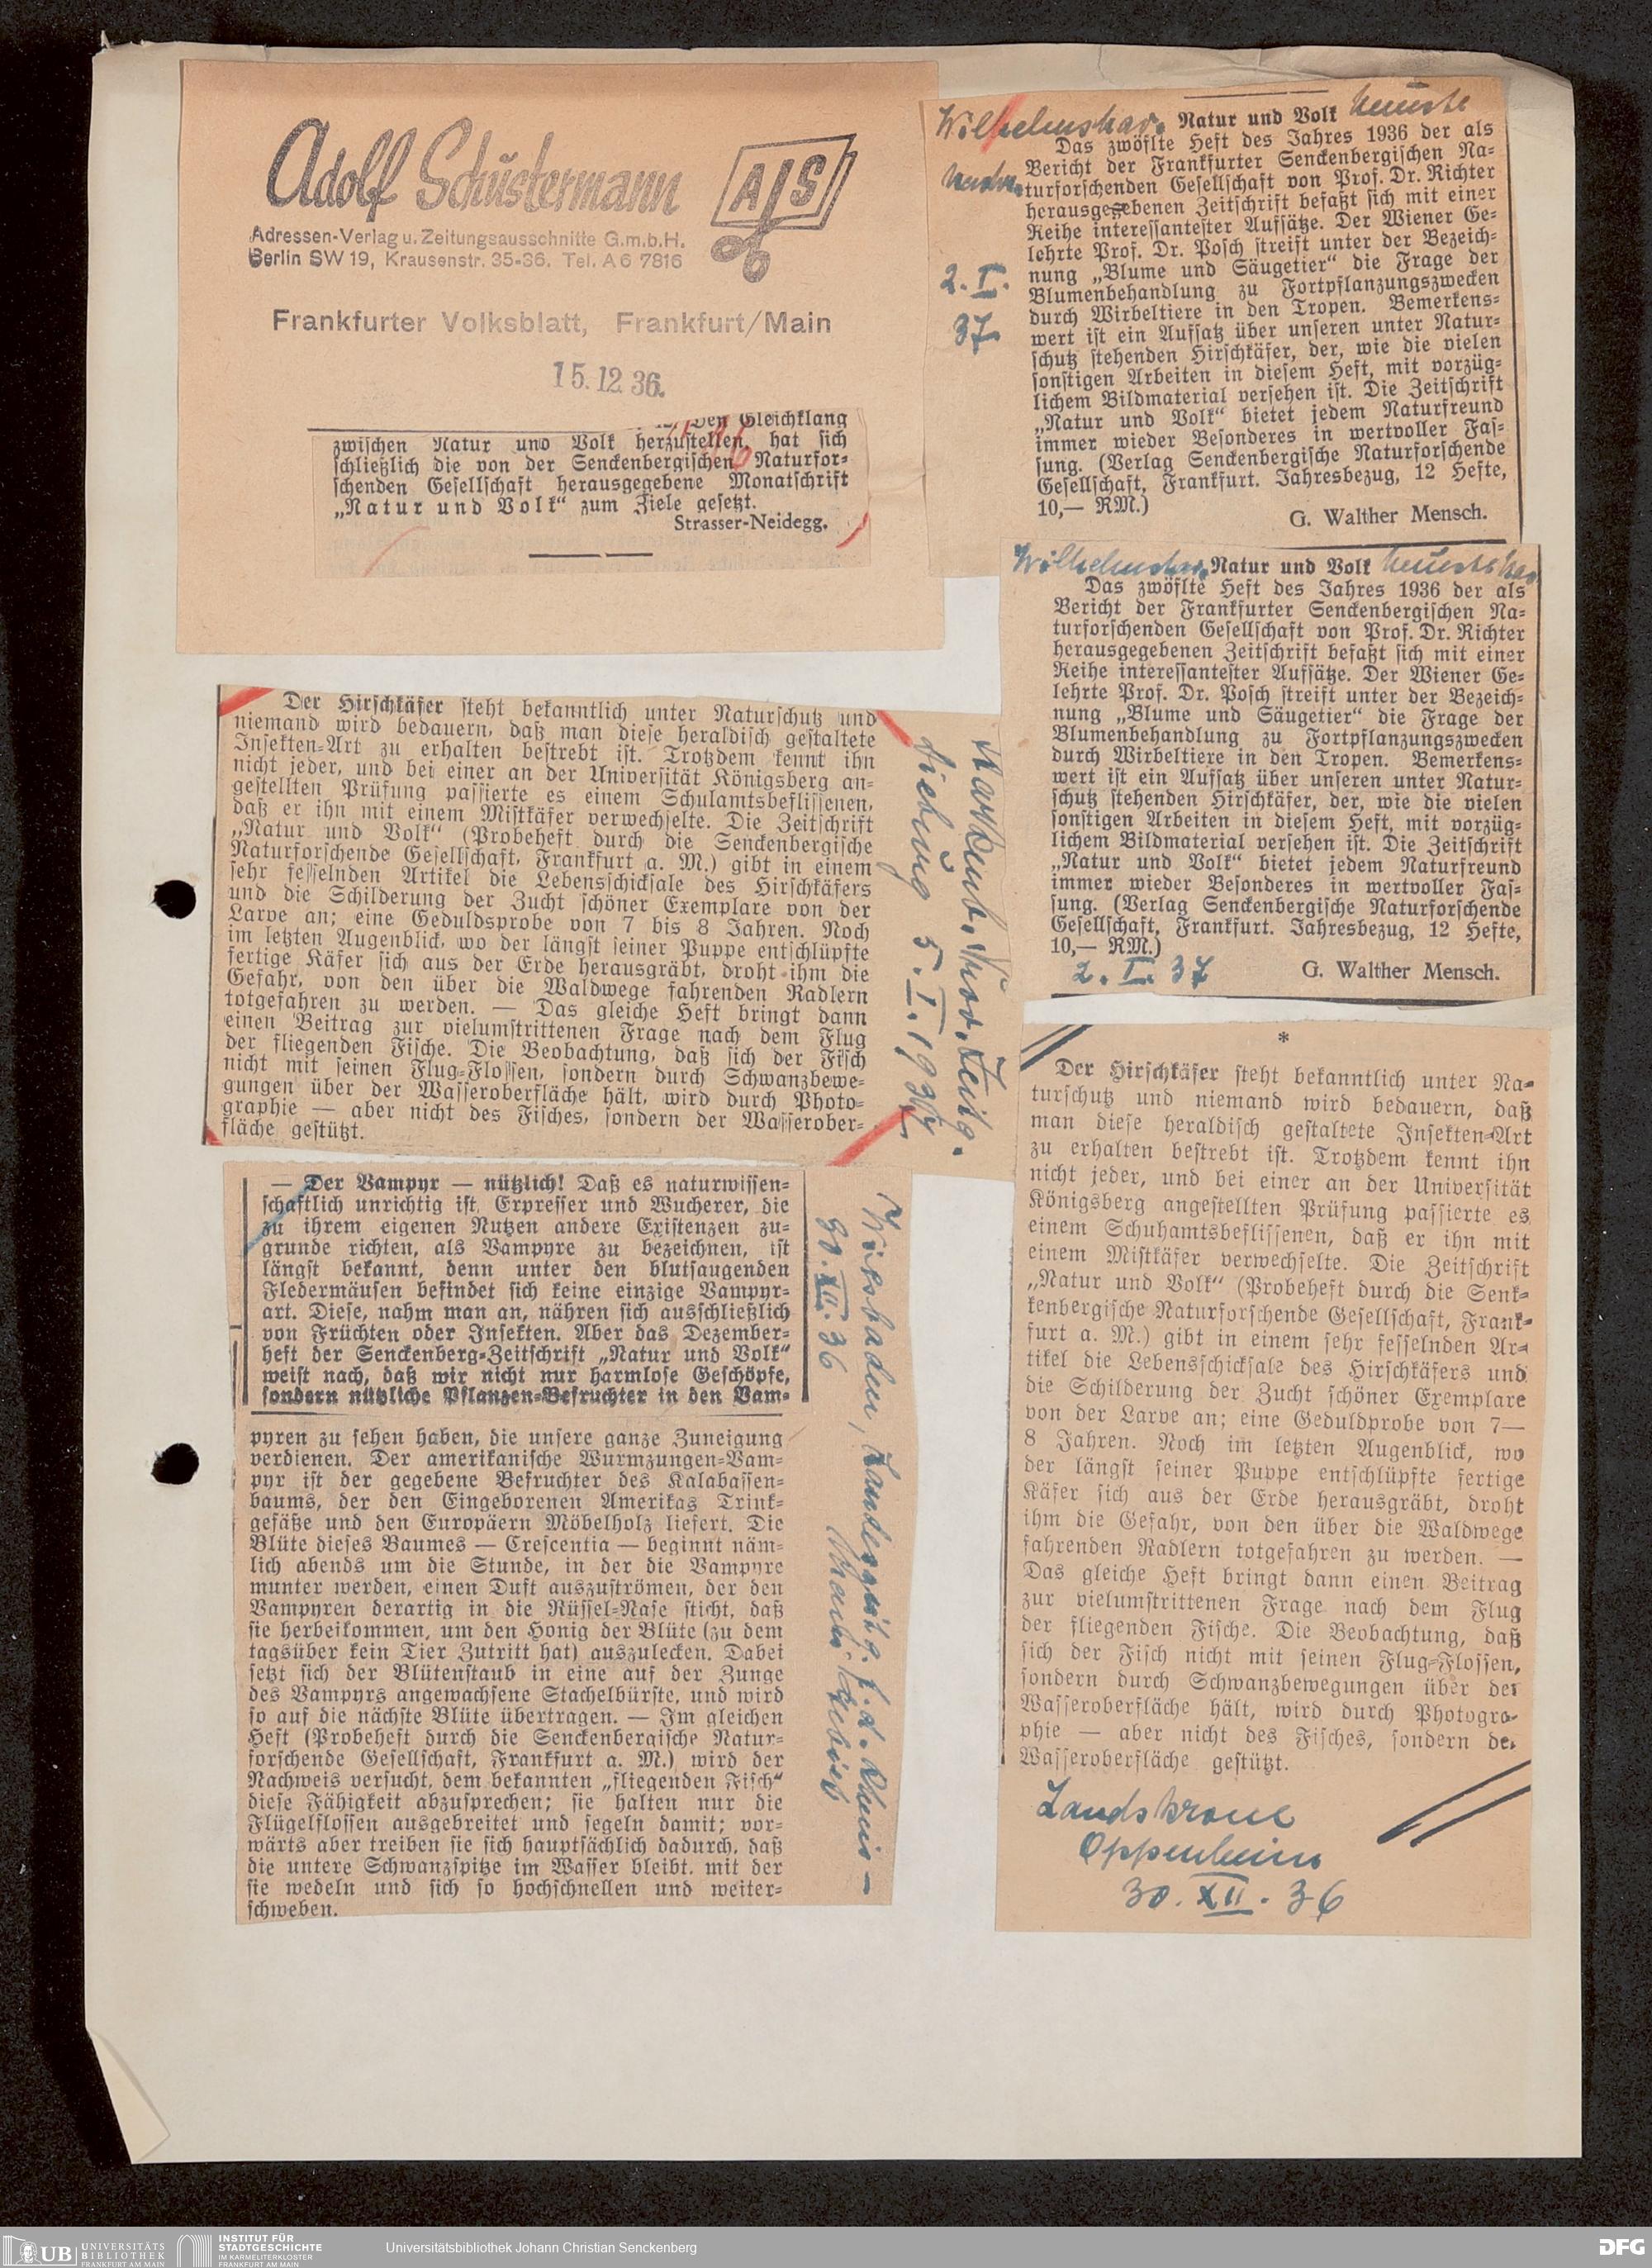 Adolf Schustermann
AZS
Adressen-Verlag u. Zeitungsausschnitte G.m.b.H.
Berlin SW 19, Krausenstr. 35-36. Tel. A 6 7816
Frankfurter Volksblatt, Frankfurt/Main
15.12.36.
Den Gleichklang
zwischen Natur und Volk herzustellen, hat sich
schließlich die von der Senckenbergischen Naturfor-
schenden Gesellschaft herausgegebene Monatschrift
„Natur und Volk“ zum Ziele gesetzt.
Strasser-Neidegg.
Wilhelmshav. Neueste
Nachr.
2. I.
37
Natur und Volk
Das zwöflte Heft des Jahres 1936 der als
Bericht der Frankfurter Senckenbergischen Na-
turforschenden Gesellschaft von Prof. Dr. Richter
herausgegebenen Zeitschrift befaßt sich mit einer
Reihe interessantester Aufsätze. Der Wiener Ge-
lehrte Prof. Dr. Posch streift unter der Bezeich-
nung „Blume und Säugetier“ die Frage der
Blumenbehandlung zu Fortpflanzungszwecken
durch Wirbeltiere in den Tropen. Bemerkens-
wert ist ein Aufsatz über unseren unter Natur-
schutz stehenden Hirschkäfer, der, wie die vielen
sonstigen Arbeiten in diesem Heft, mit vorzüg-
lichem Bildmaterial versehen ist. Die Zeitschrift
„Natur und Volk“ bietet jedem Naturfreund
immer wieder Besonderes in wertvoller Fas-
sung. (Verlag Senckenbergische Naturforschende
Gesellschaft, Frankfurt. Jahresbezug, 12 Hefte,
10,— RM.)
G. Walther Mensch.
Wilhelmshav. Neueste Nac
Natur und Volk
Das zwöflte Heft des Jahres 1936 der als
Bericht der Frankfurter Senckenbergischen Na-
turforschenden Gesellschaft von Prof. Dr. Richter
herausgegebenen Zeitschrift befaßt sich mit einer
Reihe interessantester Aufsätze. Der Wiener Ge-
lehrte Prof. Dr. Posch streift unter der Bezeich-
nung „Blume und Säugetier“ die Frage der
Blumenbehandlung zu Fortpflanzungszwecken
durch Wirbeltiere in den Tropen. Bemerkens-
wert ist ein Aufsatz über unseren unter Natur-
schutz stehenden Hirschkäfer, der, wie die vielen
sonstigen Arbeiten in diesem Heft, mit vorzüg-
lichem Bildmaterial versehen ist. Die Zeitschrift
„Natur und Volk“ bietet jedem Naturfreund
immer wieder Besonderes in wertvoller Fas-
sung. (Verlag Senckenbergische Naturforschende
Gesellschaft, Frankfurt. Jahresbezug, 12 Hefte,
10,— RM.)
2. I. 37
G. Walther Mensch.
Der Hirschkäfer steht bekanntlich unter Naturschutz und
niemand wird bedauern, daß man diese heraldisch gestaltete
Insekten-Art zu erhalten bestrebt ist. Trotzdem kennt ihn
nicht jeder, und bei einer an der Universität Königsberg an-
gestellten Prüfung passierte es einem Schulamtsbeflissenen,
daß er ihn mit einem Mistkäfer verwechselte. Die Zeitschrift
„Natur und Volk“ (Probeheft durch die Senckenbergische
Naturforschende Gesellschaft, Frankfurt a. M.) gibt in einem
sehr fesselnden Artikel die Lebensschicksale des Hirschkäfers
und die Schilderung der Zucht schöner Exemplare von der
Larve an; eine Geduldsprobe von 7 bis 8 Jahren. Noch
im letzten Augenblick, wo der längst seiner Puppe entschlüpfte
fertige Käfer sich aus der Erde herausgräbt, droht ihm die
Gefahr, von den über die Waldwege fahrenden Radlern
totgefahren zu werden. — Das gleiche Heft bringt dann
einen Beitrag zur vielumstrittenen Frage nach dem Flug
der fliegenden Fische. Die Beobachtung, daß sich der Fisch
nicht mit seinen Flug-Flossen, sondern durch Schwanzbewe-
gungen über der Wasseroberfläche hält, wird durch Photo-
graphie — aber nicht des Fisches, sondern der Wasserober-
fläche gestützt.
5. I. 1937
— Der Vampyr — nützlich! Daß es naturwissen-
schaftlich unrichtig ist, Erpresser und Wucherer, die
zu ihrem eigenen Nutzen andere Existenzen zu-
grunde richten, als Vampyre zu bezeichnen, ist
längst bekannt, denn unter den blutsaugenden
Fledermäusen befindet sich keine einzige Vampyr-
art. Diese, nahm man an, nähren sich ausschließlich
von Früchten oder Insekten. Aber das Dezember-
heft der Senckenberg-Zeitschrift „Natur und Volk“
weist nach, daß wir nicht nur harmlose Geschöpfe,
sondern nützliche Pflanzen-Befruchter in den Vam-
pyren zu sehen haben, die unsere ganze Zuneigung
verdienen. Der amerikanische Wurmzungen-Vam-
pyr ist der gegebene Befruchter des Kalabassen-
baums, der den Eingeborenen Amerikas Trink-
gefäße und den Europäern Möbelholz liefert. Die
Blüte dieses Baumes — Crescentia — beginnt näm-
lich abends um die Stunde, in der die Vampyre
munter werden, einen Duft auszuströmen, der den
Vampyren derartig in die Rüssel-Nase sticht, daß
sie herbeikommen, um den Honig der Blüte (zu dem
tagsüber kein Tier Zutritt hat) auszulecken. Dabei
setzt sich der Blütenstaub in eine auf der Zunge
des Vampyrs angewachsene Stachelbürste, und wird
so auf die nächste Blüte übertragen. — Im gleichen
Heft (Probeheft durch die Senckenbergische Natur-
forschende Gesellschaft, Frankfurt a. M.) wird der
Nachweis versucht, dem bekannten „fliegenden Fisch“
diese Fähigkeit abzusprechen; sie halten nur die
Flügelflossen ausgebreitet und segeln damit; vor-
wärts aber treiben sie sich hauptsächlich dadurch, daß
die untere Schwanzspitze im Wasser bleibt, mit der
sie wedeln und sich so hochschnellen und weiter-
schweben.
Wiesbaden, Landesztg. f. d. Rhein-
Main Gebiet
30. XII. 36
*
Der Hirschkäfer steht bekanntlich unter Na-
turschutz und niemand wird bedauern, daß
man diese heraldisch gestaltete Insekten-Art
zu erhalten bestrebt ist. Trotzdem kennt ihn
nicht jeder, und bei einer an der Universität
Königsberg angestellten Prüfung passierte es
einem Schuhamtsbeflissenen, daß er ihn mit
einem Mistkäfer verwechselte. Die Zeitschrift
„Natur und Volk“ (Probeheft durch die Senk-
kenbergische Naturforschende Gesellschaft, Frank-
furt a. M.) gibt in einem sehr fesselnden Ar-
tikel die Lebensschicksale des Hirschkäfers und
die Schilderung der Zucht schöner Exemplare
von der Larve an; eine Geduldprobe von 7—
8 Jahren. Noch im letzten Augenblick, wo
der längst seiner Puppe entschlüpfte fertige
Käfer sich aus der Erde herausgräbt, droht
ihm die Gefahr, von den über die Waldwege
fahrenden Radlern totgefahren zu werden. —
Das gleiche Heft bringt dann einen Beitrag
zur vielumstrittenen Frage nach dem Flug
der fliegenden Fische. Die Beobachtung, daß
sich der Fisch nicht mit seinen Flug-Flossen,
sondern durch Schwanzbewegungen über der
Wasseroberfläche hält, wird durch Photogra-
phie — aber nicht des Fisches, sondern der
Wasseroberfläche gestützt.
Landskrone
Oppenheim
30. XII. 36
UB UNIVERSITÄTS
BIBLIOTHEK
FRANKFURT AM MAIN
INSTITUT FÜR
STADTGESCHICHTE
IM KARMELITERKLOSTER
FRANKFURT AM MAIN
Universitätsbibliothek Johann Christian Senckenberg
DFG